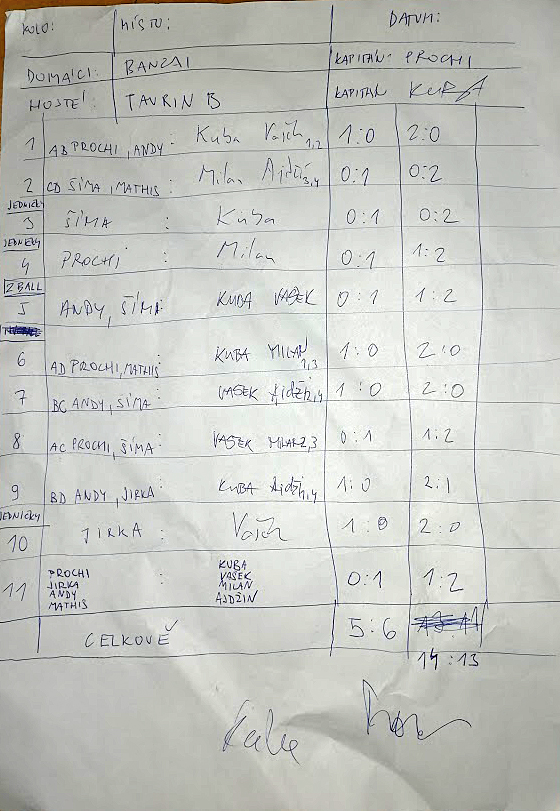 KOLO: MÍSTO: DATUM:
DOMÁCÍ: BANZAI KAPITÁN: PROCHI
HOSTÉ: TAURIN B KAPITÁN KUBA
1 AB PROCHI, ANDY : Kuba Vašek 1,2 1:0 2:0
2 CD ŠÍMA, MATHIS : Milan 3,4 0:1 0:2
JEDNIČKY
3 ŠÍMA : Kuba 0:1 0:2
JEDNIČKY
4 PROCHI : Milan 0:1 1:2
2 BALL
5 ANDY, ŠÍMA : KUBA VAŠEK 0:1 1:2
6 AD PROCHI, MATHIS : KUBA MILAN 1,3 1:0 2:0
7 BC ANDY, ŠÍMA : VAŠEK 2,4 1:0 2:0
8 AC PROCHI, ŠÍMA : VAŠEK MILAN 2,3 0:1 1:2
9 BD ANDY, JIRKA : KUBA 1,4 1:0 2:1
JEDNIČKY
10 JIRKA : Vašek 1:0 2:0
11 PROCHI : KUBA 0:1 1:2
JIRKA VAŠEK
ANDY MILAN
MATHIS AJDŽIN
CELKOVĚ 5:6
14:13
Kuba